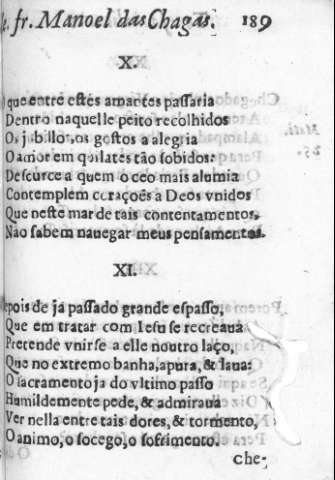 de. fr. Manoel das Chagas. 189
X.
O que entre estes amantes passaria
Dentro naquelle peito recolhidos
Os jubillos, os gostos a alegria
O amor em quilates tão sobidos:
Descurce a quem o ceo mais alumia
Contemplem corações a Deos vnidos
Que neste mar de tais contentamentos,
Não sabem nauegar meus pensamentos.
XI.
Depois de ja passado grande espasso,
Que em tratar com Iesu se recreaua
Pretende vnirse a elle noutro laço,
Que no extremo banha, apura, & laua:
O sacramento ja do vltimo passo
Humildemente pede, & admiraua
Ver nella entre tais dores, & tormento,
O animo, o socego, o sofrimento.
che-